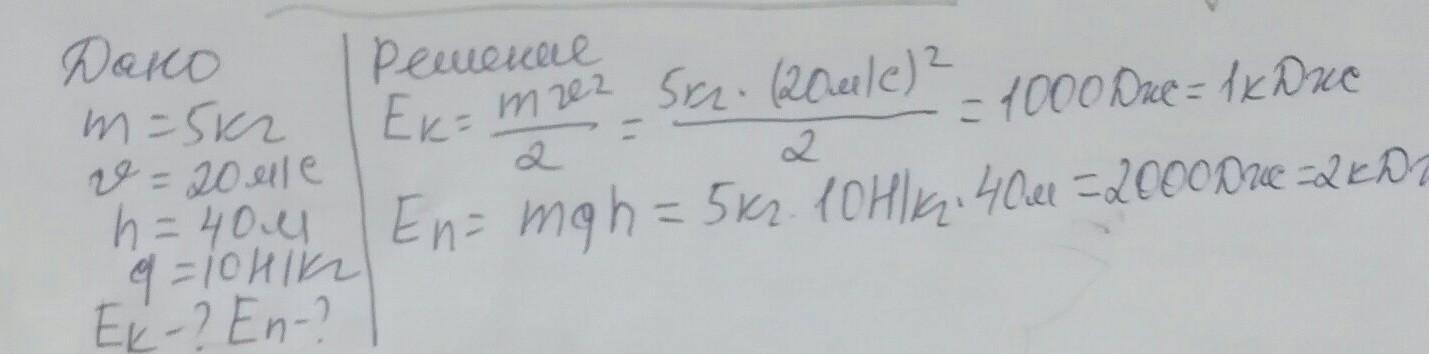 Дано
m = 5кг
v = 20м/с
h = 40м
g = 10Н/кг
Eк - ? Eп - ?
Решение
Eк = mv²/2 = 5кг · (20м/с)²/2 = 1000Дж = 1кДж
Eп = mgh = 5кг · 10Н/кг · 40м = 2000Дж = 2кД